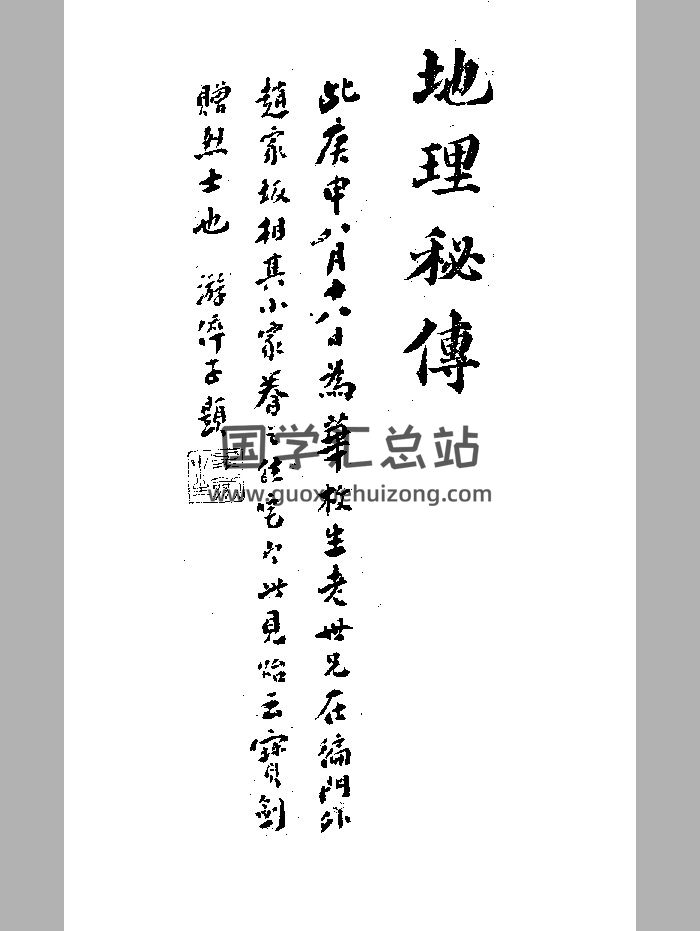 地理秘傳
此庚申八月十八日為華枚生老世兄在偏門外
趙家坂相其小家眷之佳宅以此見貽云寶劍
贈烈士也 游傳子題
国学汇总站
www.guoxuehuizong.com